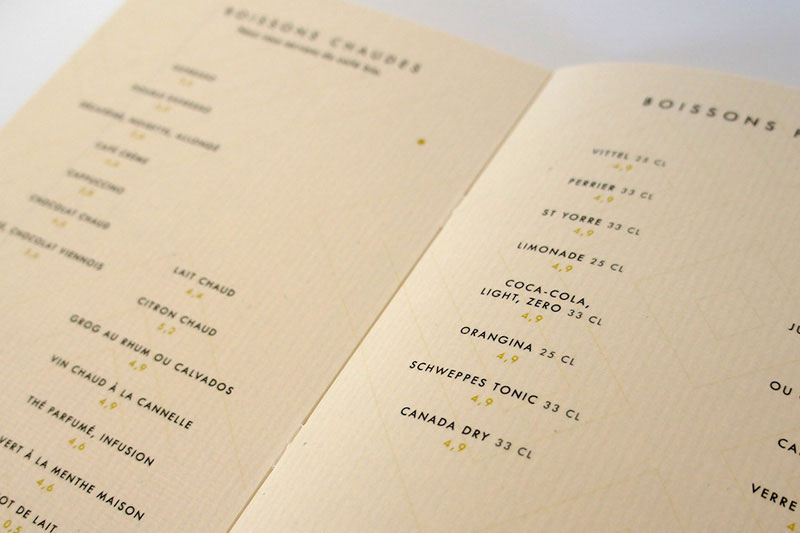 BOISSONS CHAUDES
ESPRESSO
DOUBLE EXPRESSO
DÉCAFÉINÉ, NOISETTE, ALLONGÉ
CAFÉ CRÈME
CAPPUCCINO
CHOCOLAT CHAUD
CHOCOLAT VIENNOIS
LAIT CHAUD
4,4
CITRON CHAUD
5,2
GROG AU RHUM OU CALVADOS
4,9
VIN CHAUD À LA CANNELLE
4,9
THÉ PARFUMÉ, INFUSION
4,6
VERT À LA MENTHE MAISON
4,6
OT DE LAIT
0,5
BOISSONS
VITTEL 25 CL
4,9
PERRIER 33 CL
4,9
ST YORRE 33 CL
4,9
LIMONADE 25 CL
4,9
COCA-COLA,
LIGHT, ZERO 33 CL
4,9
ORANGINA 25 CL
4,9
SCHWEPPES TONIC 33 CL
4,9
CANADA DRY 33 CL
4,9
JU
OU
CA
VERRE